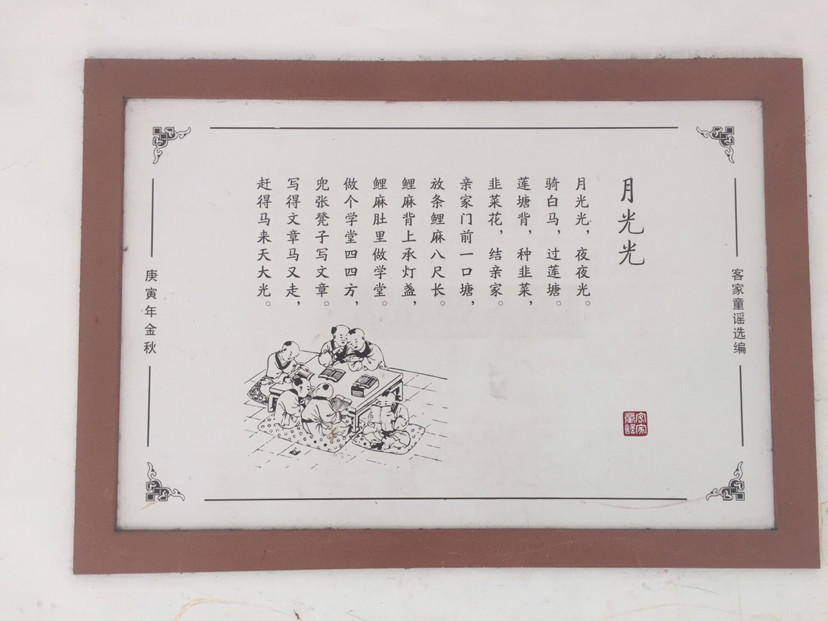 月光光
月光光，夜夜光。
骑白马，过莲塘。
莲塘背，种韭菜，
韭菜花，结亲家。
亲家门前一口塘，
放条鲤麻八尺长。
鲤麻背上承灯盏，
鲤麻肚里做学堂。
做个学堂四四方，
兜张凳子写文章。
写得文章马又走，
赶得马来天大光。
客家童谣选编
庚寅年金秋